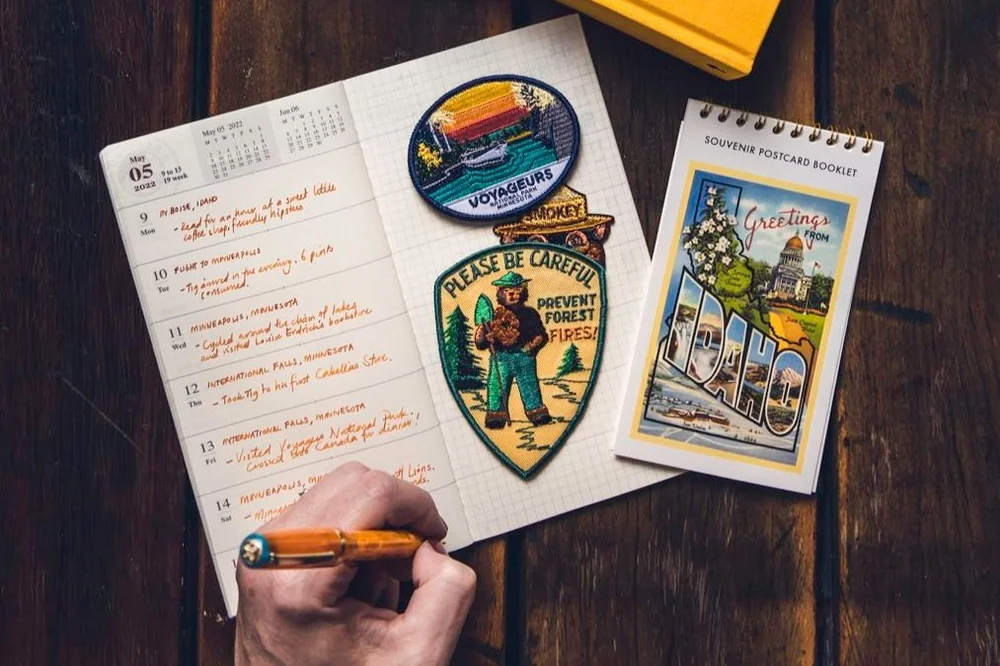 May
05
2022
9 to 15
19 week
May 05 2022
M T W T F S S
Jun 06
M T W T F S S
9
Mon
IN BOISE, IDAHO
- Read for an hour at a sweet little
coffee shop, friendly hipsters
10
Tue
FLIGHT TO MINNEAPOLIS
- Tig arrived in the evening. 6 pints
consumed.
11
Wed
MINNEAPOLIS, MINNESOTA
- Cycled around the chain of lakes
and visited Louise Erdrich's bookstore
12
Thu
INTERNATIONAL FALLS, MINNESOTA
- Took Tig to his first Cabellas Store.
13
Fri
INTERNATIONAL FALLS, MINNESOTA
- Visited Voyageurs National Park;
crossed into Canada for dinner!
14
Sat
MINNEAPOLIS,
Lions.
VOYAGEURS
NATIONAL PARK
MINNESOTA
SMOKEY
PLEASE BE CAREFUL
PREVENT
FOREST
FIRES!
SOUVENIR POSTCARD BOOKLET
Greetings
FROM
IDAHO